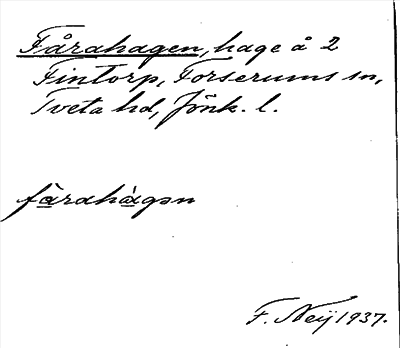 Fårahagen, hage å 2
Fintorp, Forserums sn,
Tveta hd, Jönk. l.
fårahàgən
F. Neij 1937.